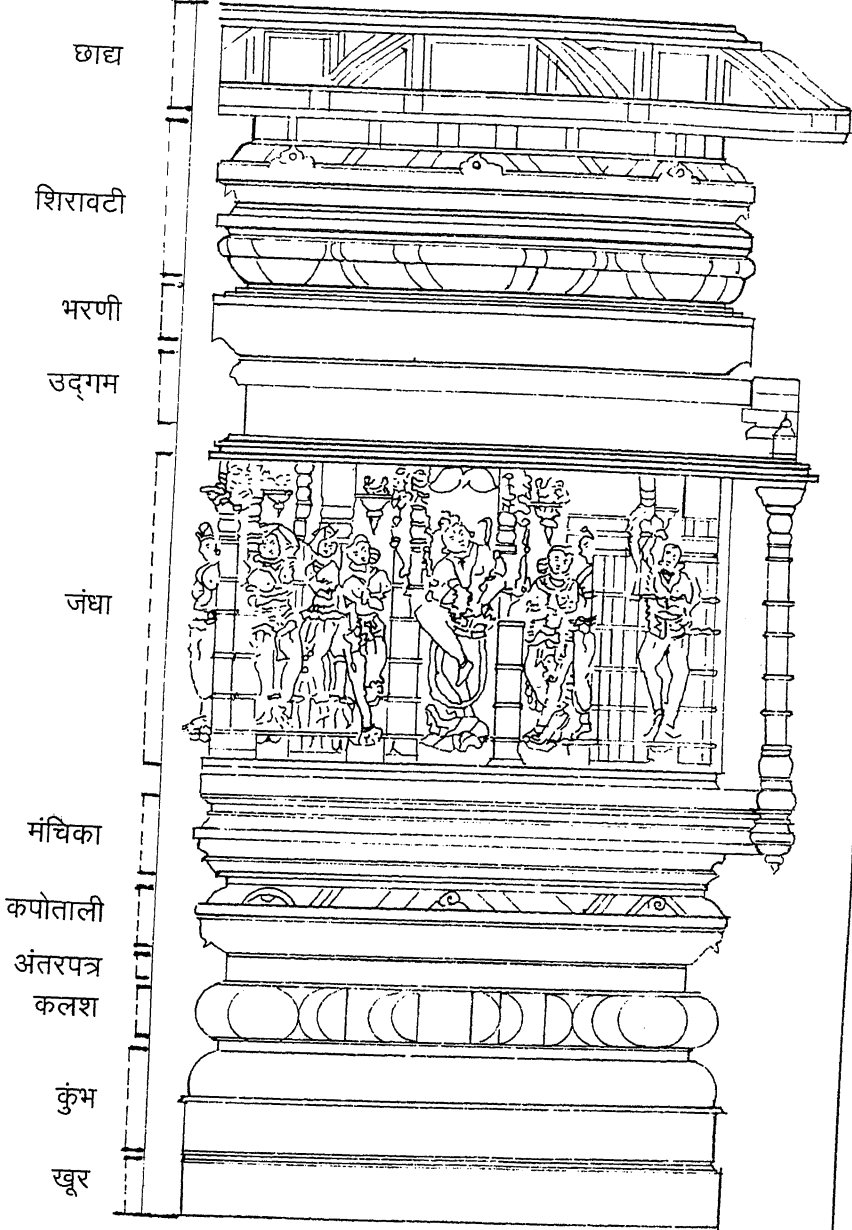 छाद्य
शिरावटी
भरणी
उद्‌गम
जंधा
मंचिका
कपोताली
अंतरपत्र
कलश
कुंभ
खूर